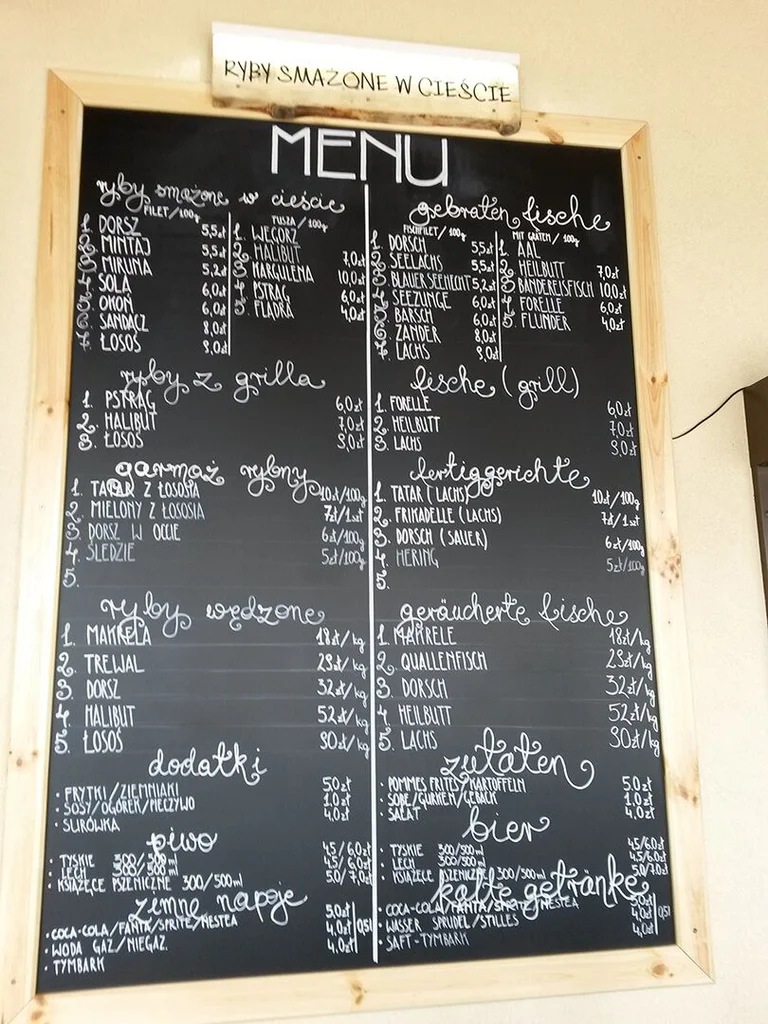 RYBY SMAŻONE W CIEŚCIE
MENU
ryby smażone w cieście
FILET/100g
1. DORSZ 5,5zł
2. MINTAJ 5,5zł
3. MIRUNA 5,2zł
4. SOLA 6,0zł
5. OKOŃ 6,0zł
6. SANDACZ 8,0zł
7. ŁOSOŚ 9,0zł
TUSZA/100g
1. WĘGORZ
2. HALIBUT 7,0zł
3. MARGULENA 10,0zł
4. PSTRĄG 6,0zł
5. FLĄDRA 4,0zł
ryby z grilla
1. PSTRĄG 6,0zł
2. HALIBUT 7,0zł
3. ŁOSOŚ 9,0zł
garmaż rybny
1. TATAR Z ŁOSOSIA 10zł/100g
2. MIELONY Z ŁOSOSIA 7zł/1szt
3. DORSZ W OCCIE 6zł/100g
4. ŚLEDZIE 5zł/100g
5.
ryby wędzone
1. MAKRELA 18zł/kg
2. TREWAL 29zł/kg
3. DORSZ 32zł/kg
4. HALIBUT 52zł/kg
5. ŁOSOŚ 90zł/kg
dodatki
• FRYTKI/ZIEMNIAKI 5.0zł
• SOSY/OGÓREK/PIECZYWO 1.0zł
• SURÓWKA 4,0zł
piwo
• TYSKIE 300/500ml 4,5/6.0zł
• LECH 300/500ml 4,5/6,0zł
• KSIĄŻĘCE PSZENICZNE 300/500ml 5.0/7.0zł
zimne napoje
• COCA-COLA/FANTA/SPRITE/NESTEA 5.0zł
• WODA GAZ/NIEGAZ. 4,0zł 0,5l
• TYMBARK 4,0zł
gebraten fische
FISCHFILET/100g
1. DORSCH 5,5zł
2. SEELACHS 5,5zł
3. BLAUER SEEHECHT 5,2zł
4. SEEZUNGE 6,0zł
5. BARSCH 6,0zł
6. ZANDER 8,0zł
7. LACHS 9,0zł
MIT GRÄTEN/100g
1. AAL
2. HEILBUTT 7,0zł
3. BÄNDEREISFISCH 10,0zł
4. FORELLE 6,0zł
5. FLUNDER 4,0zł
fische (grill)
1. FORELLE 6,0zł
2. HEILBUTT 7,0zł
3. LACHS 9,0zł
fertiggerichte
1. TATAR (LACHS) 10zł/100g
2. FRIKADELLE (LACHS) 7zł/1szt
3. DORSCH (SAUER) 6zł/100g
4. HERING 5zł/100g
5.
geräucherte fische
1. MAKRELE 18zł/kg
2. QUALLENFISCH 29zł/kg
3. DORSCH 32zł/kg
4. HEILBUTT 52zł/kg
5. LACHS 90zł/kg
zutaten
• POMMES FRITES/KARTOFFELN 5.0zł
• SOBE/GURKEN/GEBÄCK 1.0zł
• SALAT 4,0zł
bier
• TYSKIE 300/500ml 4,5/6.0zł
• LECH 300/500ml 4,5/6,0zł
• KSIĄŻĘCE PSZENICZNE 300/500ml 5.0/7.0zł
kalte getränke
• COCA-COLA/FANTA/SPRITE/NESTEA 5.0zł
• WASSER SPRUDEL/STILLES 4,0zł 0,5l
• SAFT-TYMBARK 4,0zł